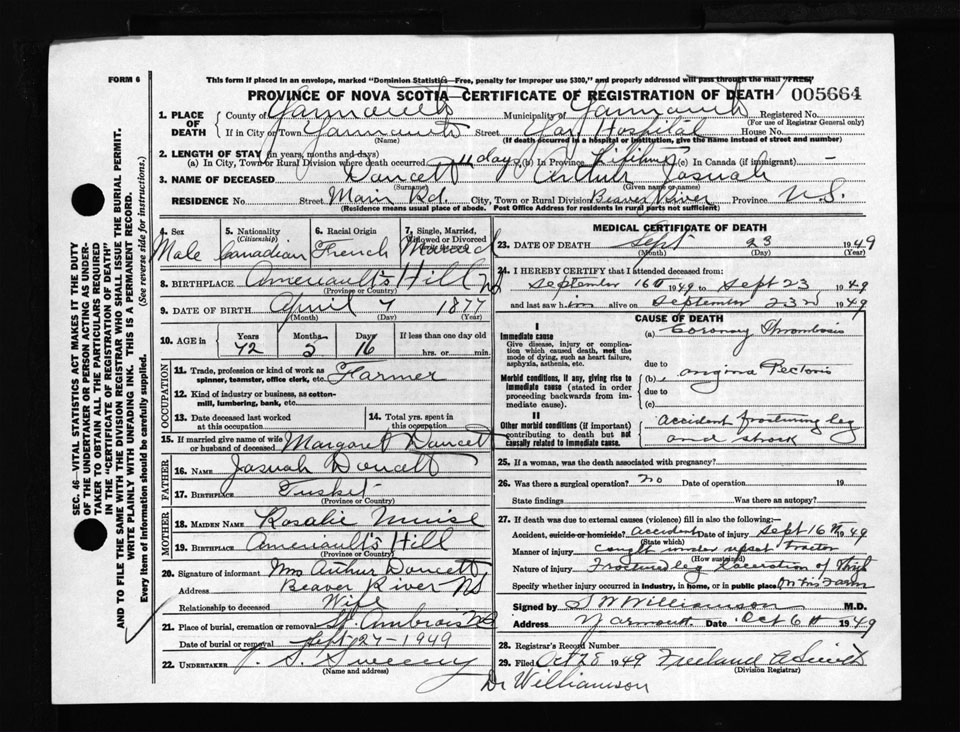 FORM 6
This form if placed in an envelope, marked "Dominion Statistics—Free, penalty for improper use $300," and properly addressed will pass through the mail "FREE"
PROVINCE OF NOVA SCOTIA—CERTIFICATE OF REGISTRATION OF DEATH 005664
1. PLACE OF DEATH
County of Yarmouth Municipality of Yarmouth Registered No.
(For use of Registrar General only)
If in City or Town Yarmouth Street Yar. Hospital House No.
(Name) (If death occurred in a hospital or institution, give the name instead of street and number)
2. LENGTH OF STAY (in years, months and days)
(a) In City, Town or Rural Division where death occurred days (b) In Province Lifetime (c) In Canada (if immigrant) —
3. NAME OF DECEASED Doucett Arthur Josuah
(Surname) (Given name or names)
RESIDENCE No. Street Main Rd. City, Town or Rural Division Beaver River Province N.S.
(Residence means usual place of abode. Post Office Address for residents in rural parts not sufficient)
4. Sex Male
5. Nationality (Citizenship) Canadian
6. Racial Origin French
7. Single, Married, Widowed or Divorced Married
8. BIRTHPLACE Ameriault's Hill NS
(Province or Country)
9. DATE OF BIRTH April 7 1877
(Month) (Day) (Year)
10. AGE IN Years 72 Months 5 Days 16 If less than one day old
hrs. or min.
OCCUPATION
11. Trade, profession or kind of work as spinner, teamster, office clerk, etc. Farmer
12. Kind of industry or business, as cotton-mill, lumbering, bank, etc.
13. Date deceased last worked at this occupation
14. Total yrs. spent in this occupation
15. If married give name of wife or husband of deceased Margaret Doucett
FATHER
16. NAME Josuah Doucett
17. BIRTHPLACE Tusket
(Province or Country)
MOTHER
18. MAIDEN NAME Rosalie Muise
19. BIRTHPLACE Ameriault's Hill
(Province or Country)
20. Signature of informant Mrs Arthur Doucett
Address Beaver River NS
Relationship to deceased Wife
21. Place of burial, cremation or removal St. Ambrois NS
Date of burial or removal Sept 27-1949
22. UNDERTAKER Sweeny
(Name and address)
MEDICAL CERTIFICATE OF DEATH
23. DATE OF DEATH Sept 23 1949
(Month) (Day) (Year)
24. I HEREBY CERTIFY that I attended deceased from:
September 16th 1949 to Sept 23 1949
and last saw him alive on September 23rd 1949
CAUSE OF DEATH
I
Immediate cause
Give disease, injury or complication which caused death, not the mode of dying, such as heart failure, asphyxia, asthenia, etc.
(a) Coronary Thrombosis
due to
Morbid conditions, if any, giving rise to immediate cause (stated in order proceeding backwards from immediate cause).
(b) angina Pectoris
due to
(c)
II
Other morbid conditions (if important) contributing to death but not causally related to immediate cause.
accident fracturing leg
and shock
25. If a woman, was the death associated with pregnancy?
26. Was there a surgical operation? no Date of operation 19
State findings Was there an autopsy?
27. If death was due to external causes (violence) fill in also the following:
Accident, suicide or homicide? accident Date of injury Sept 16th 1949
(State which)
Manner of injury caught under upset Tractor
(How sustained)
Nature of injury Fractured leg Laceration of Thigh
Specify whether injury occurred in industry, in home, or in public place On His Farm
Signed by Williamson M.D.
Address Yarmouth Date Oct 6th 1949
28. Registrar's Record Number
29. Filed Oct 28 1949 Freeland Smith
(Division Registrar)
Dr Williamson
SEC. 46—VITAL STATISTICS ACT MAKES IT THE DUTY
OF THE UNDERTAKER OR PERSON ACTING AS UNDER-
TAKER TO OBTAIN ALL THE PARTICULARS REQUIRED
IN THE "CERTIFICATE OF REGISTRATION OF DEATH"
AND TO FILE THE SAME WITH THE DIVISION REGISTRAR WHO SHALL ISSUE THE BURIAL PERMIT.
WRITE PLAINLY WITH UNFADING INK. THIS IS A PERMANENT RECORD.
Every item of information should be carefully supplied. (See reverse side for instructions.)